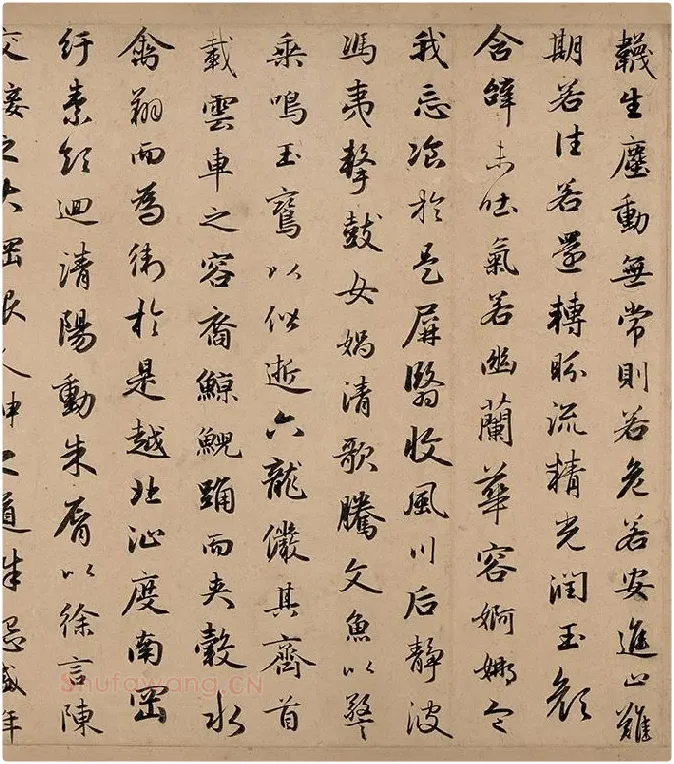 韈生塵動無常則若危若安進止難
期若往若還轉盼流精光潤玉顏
含辭未吐氣若幽蘭華容婀娜令
我忘飡於是屏翳收風川后靜波
馮夷擊鼓女媧清歌騰文魚以警
乘鳴玉鸞以偕逝六龍儼其齊首
載雲車之容裔鯨鯢踊而夾轂水
禽翔而為衛於是越北沚度南岡
紆素領迴清陽動朱脣以徐言陳
交接之大綱恨人神之道殊怨盛年
Shufawang.CN